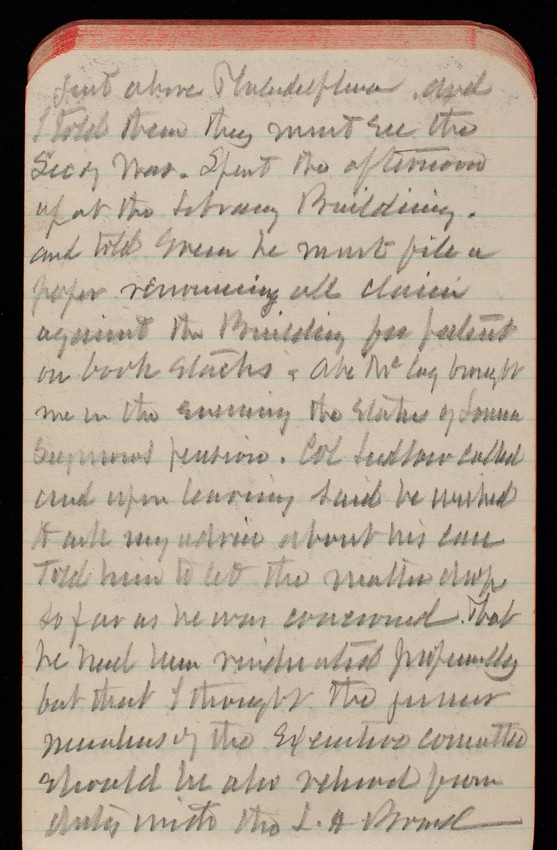 just above Philadelphia, and
I told them they must see the
Secy War. Spent the afternoon
up at the Library Building.
and told Green he must file a
paper renouncing all claim
against the Building for patent
on book stacks. Abe McCoy brought
me in the evening the status of
Seymours pension. Col Ludlow called
and upon leaving said he wished
to ask my advice about his case
Told him to let the matter drop
so far as he was concerned. That
he had been vindicated
but that I thought the junior
members of the Executive committee
should be also relieved from
duty with the L. H Board